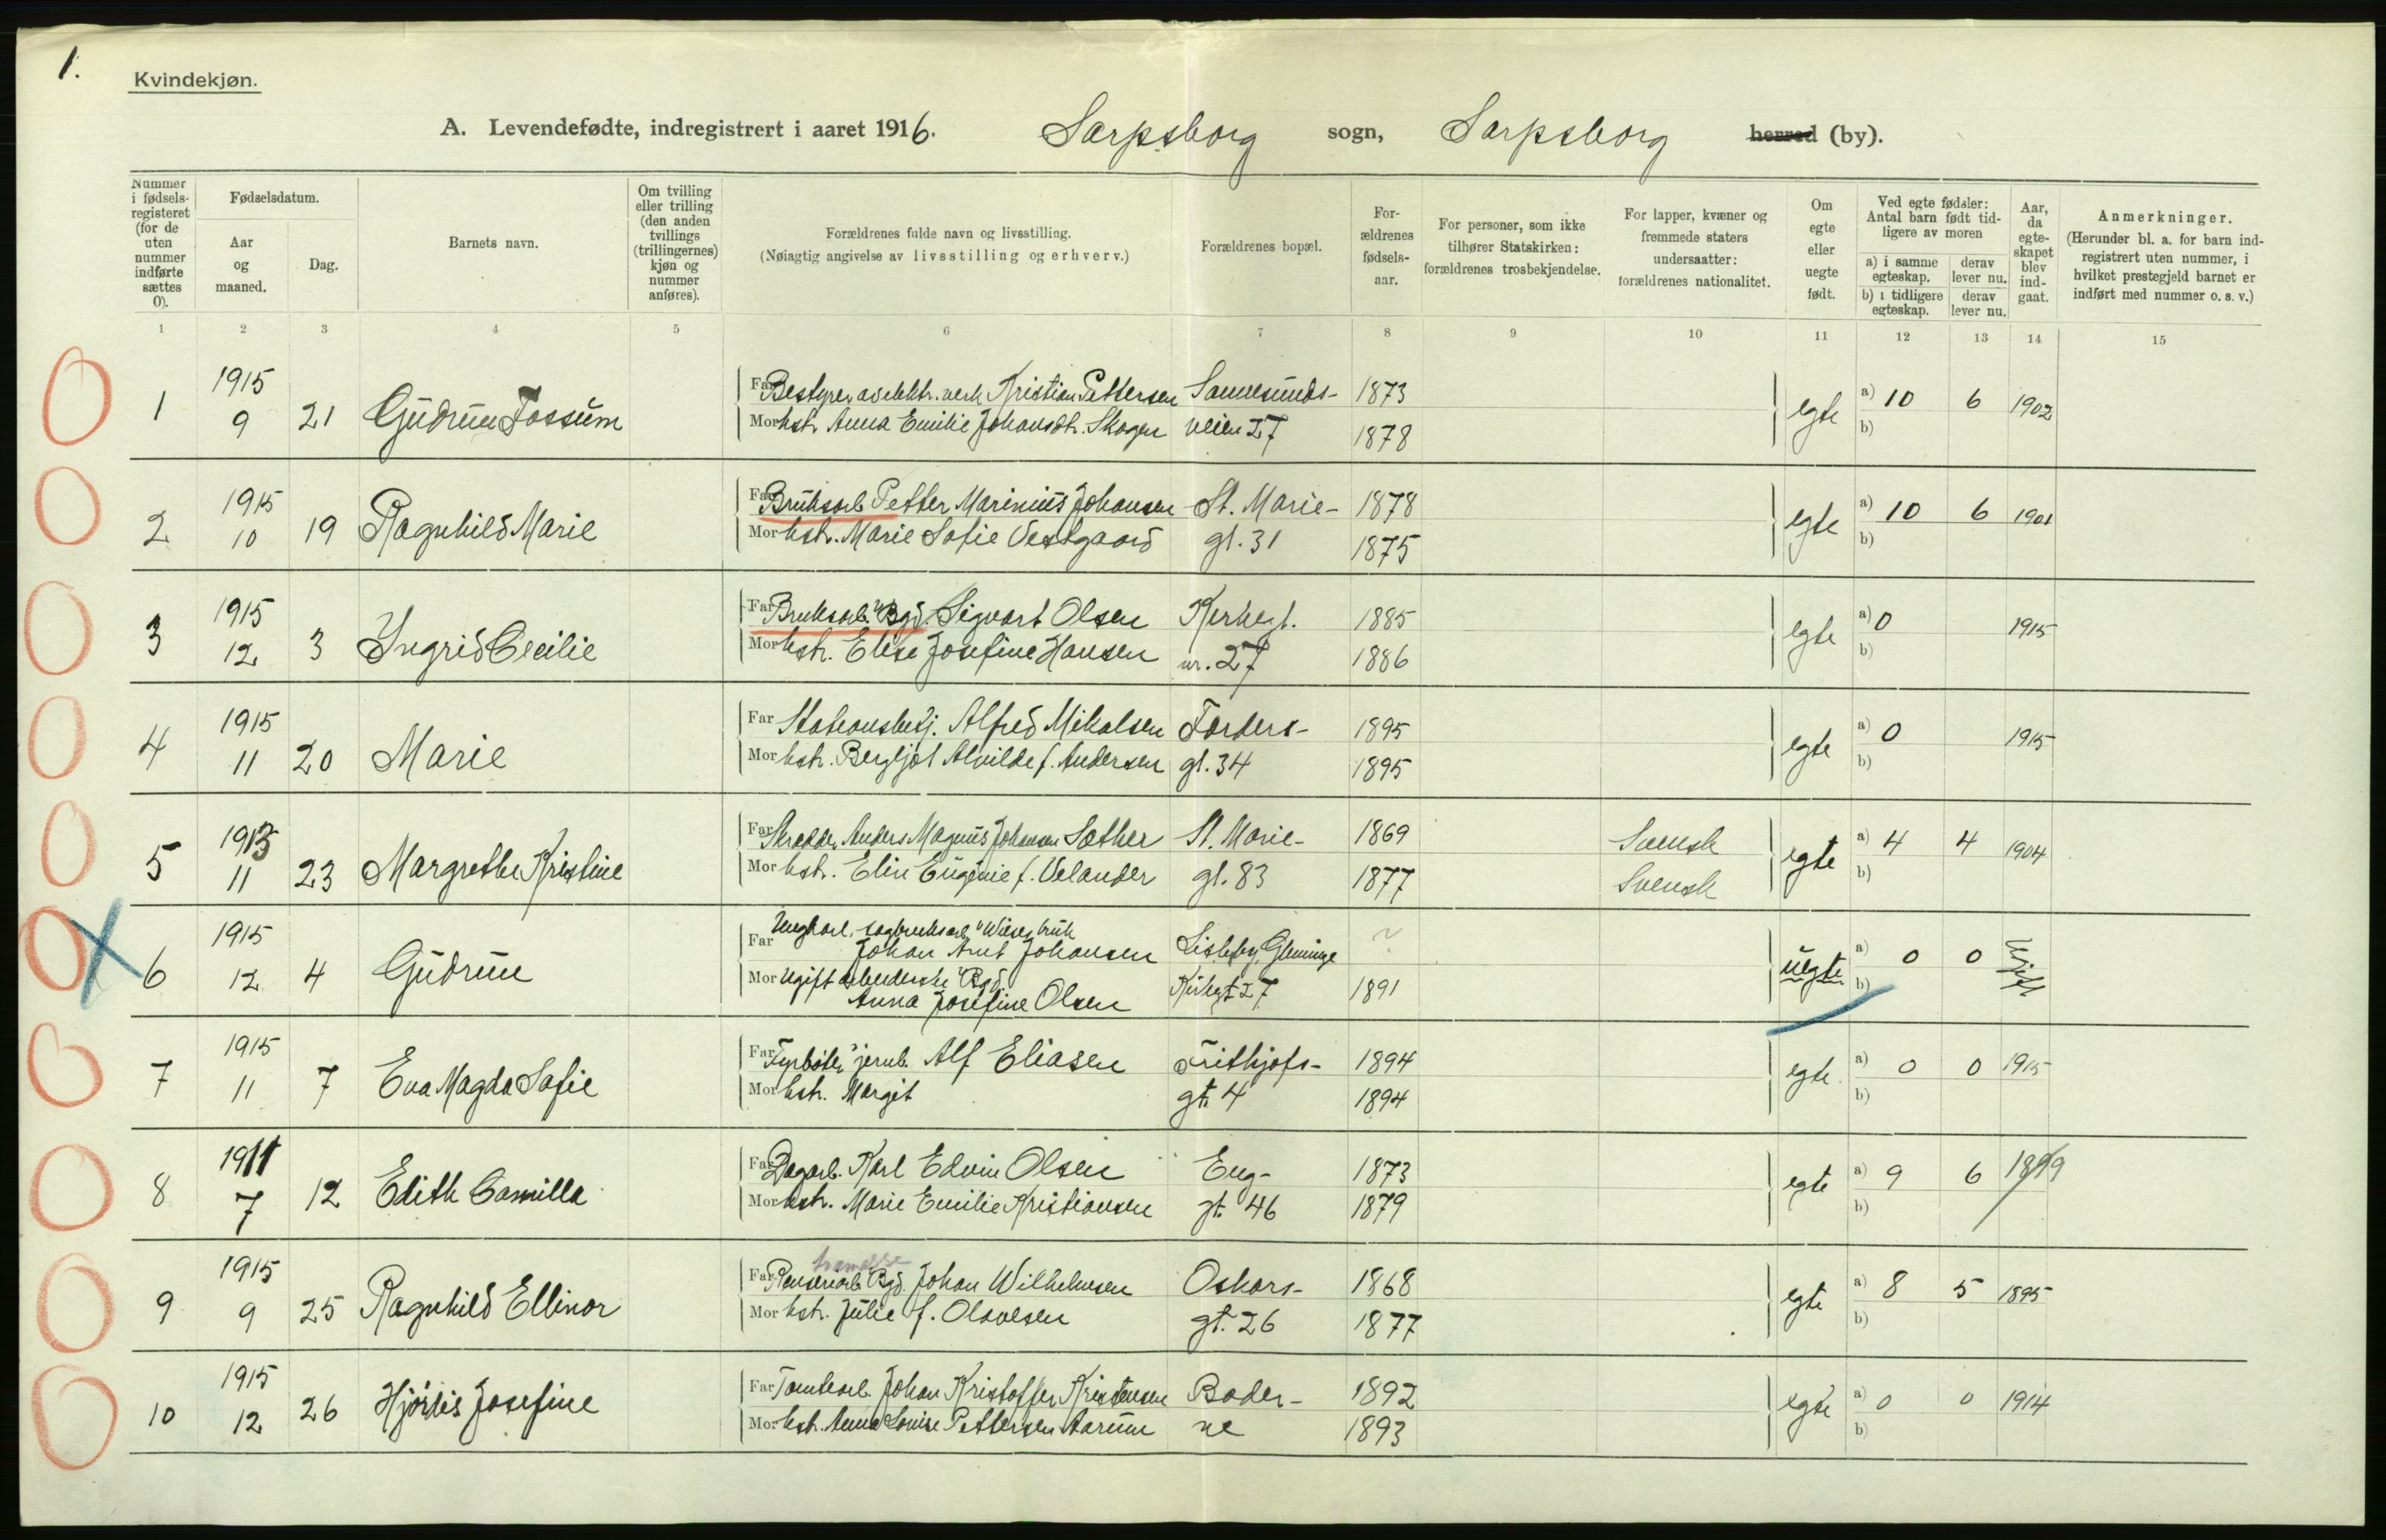 1.
Kvindekjøn.
A. Levendefødte, indregistrert i aaret 1916. Sarpsborg sogn, Sarpsborg herred (by).
Nummer i fødselsregisteret (for de uten nummer indførte sættes 0).
Fødselsdatum.
Aar og maaned.
Dag.
Barnets navn.
Om tvilling eller trilling (den anden tvillings (trillingernes) kjøn og nummer anføres).
Forældrenes fulde navn og livsstilling.
(Nøiagtig angivelse av livsstilling og erhverv.)
Forældrenes bopæl.
Forældrenes fødselsaar.
For personer, som ikke tilhører Statskirken: forældrenes trosbekjendelse.
For lapper, kvæner og fremmede staters undersaatter: forældrenes nationalitet.
Om egte eller uegte født.
Ved egte fødsler: Antal barn født tidligere av moren
a) i samme egteskap. derav lever nu.
b) i tidligere egteskap. derav lever nu.
Aar, da egteskapet blev indgaat.
Anmerkninger.
(Herunder bl. a. for barn indregistrert uten nummer, i hvilket prestegjeld barnet er indført med nummer o. s. v.)
1 2 3 4 5 6 7 8 9 10 11 12 13 14 15
1 1915 9 21 Gudrun Fossum
Far Bestyrer av elektr. verk Kristian Pettersen Sannesunds- 1873
Mor hstr. Anna Emilie Johansdtr. Skogen veien 27 1878
egte a) 10 6 1902
b)
2 1915 10 19 Ragnhild Marie
Far Bruksarb. Petter Marinius Johansen St. Marie- 1878
Mor hstr. Marie Sofie Vestgaard gt. 31 1875
egte a) 10 6 1901
b)
3 1915 12 3 Ingrid Cecilie
Far Bruksarb. Bgd. Sigvart Olsen Kirkegt. 1885
Mor hstr. Elise Josefine Hansen nr. 27 1886
egte a) 0 1915
b)
4 1915 11 20 Marie
Far Stationsbetj. Alfred Mikalsen Torders- 1895
Mor hstr. Bergljot Alvilde f. Andersen gt. 34 1895
egte a) 0 1915
b)
5 1913 11 23 Margrethe Kristine
Far Skrædder Anders Magnus Johansen Sæther St. Marie- 1869 Svensk
Mor hstr. Elin Eugenie f. Velander gt. 83 1877 Svensk
egte a) 4 4 1904
b)
6 1915 12 4 Gudrun
Far Ungkarl, sagbruksarb. Wiesesbruk
Johan Arnt Johansen Lisleby, Glemminge ?
Mor Ugift arbeiderske Bgd.
Anna Josefine Olsen Kirkegt 27 1891
uegte a) 0 0 Ugift
b)
7 1915 11 7 Eva Magda Sofie
Far Fyrbøter jernb. Alf Eliasen Frithjofs- 1894
Mor hstr. Margit gt. 4 1894
egte a) 0 0 1915
b)
8 1911 7 12 Edith Camilla
Far Dagarb. Karl Edvin Olsen Eng- 1873
Mor hstr. Marie Emilie Kristiansen gt. 46 1879
egte a) 9 6 1899
b)
9 1915 9 25 Ragnhild Ellinor
Far Bgd. Johan Wilhelmsen Oskars- 1868
Mor hstr. Julie f. Olavesen gt. 26 1877
egte a) 8 5 1895
b)
10 1915 12 26 Hjørdis Josefine
Far Tomtearb. Johan Kristoffer Kristensen Boder- 1892
Mor hstr. Anna Lovise Pettersen Aarum ne 1893
egte a) 0 0 1914
b)